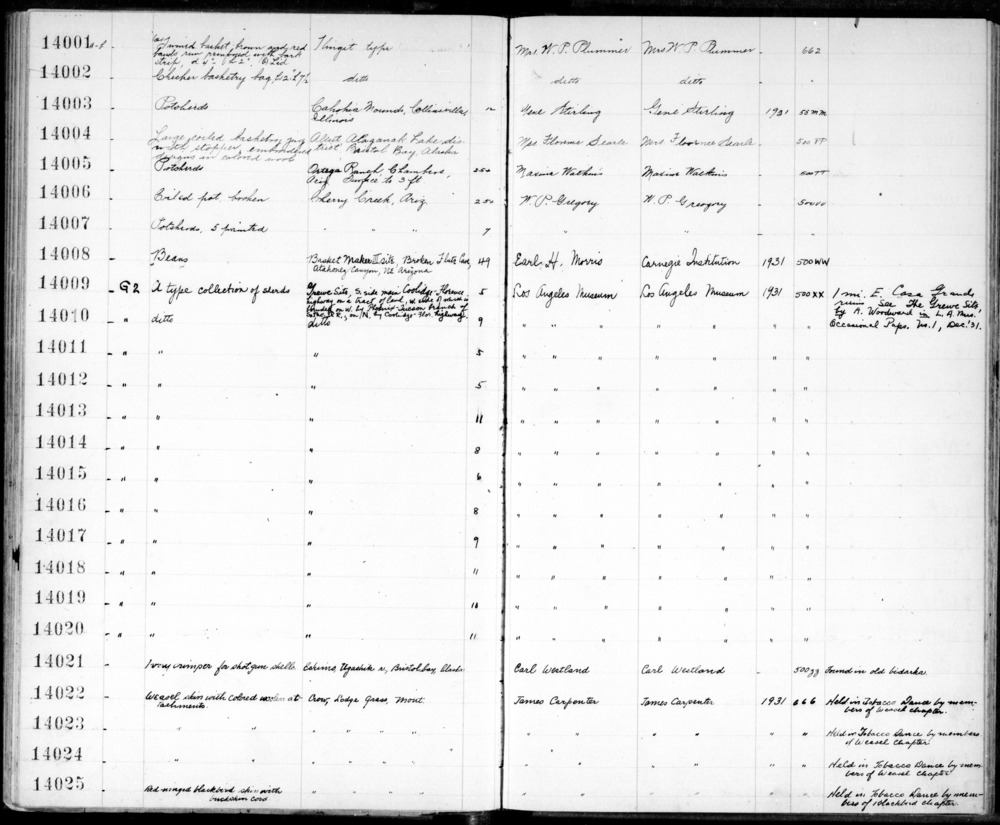 14001 a-b Twined basket, brown and red Tlingit type Mrs W. P. Plummer Mrs W. P. Plummer - 662
bands run with bark
strip, d 4". (2) Lid
14002 Checker basketry bag, ditto ditto ditto
14003 Potsherds Cahokia Mounds, Collinsville, Gene Stirling Gene Stirling 1931 55mm
Illinois
14004 Large coiled basketry jug Aleut Lake dis- Mrs Florence Searle Mrs Florence Searle -
with stopper, embroidered trict Bristol Bay, Alaska
designs in colored wool
14005 Potsherds Ortega Ranch, Chambers, 250 Maxine Watkins Maxine Watkins - 500TT
Ariz. Surface to 3 ft
14006 Coiled pot, broken Cherry Creek, Ariz. 250 W. P. Gregory W. P. Gregory -
14007 Potsherds, 5 painted " " " 7 " " -
14008 Beans Basket Maker III site, Broken Flute Cave, 49 Earl H. Morris Carnegie Institution 1931 500WW
Canyon, NE Arizona
14009 - G2 A type collection of sherds Grewe Site, S. side main Coolidge-Florence 5 Los Angeles Museum Los Angeles Museum 1931 500XX 1 mi. E. Casa Grande
highway on a tract of land, ruin. See The Grewe Site
on W. by Phoenix-Tucson branch of by A. Woodward in L.A. Mus.
on N. by Coolidge-Flor. highway. Occasional Paps. No. 1, Dec. '31.
14010 - " ditto ditto 9 " " " " " " "
14011 - " " " 5 " " " " " " "
14012 - " " " 5 " " " " " " "
14013 - " " " 11 " " " " " " "
14014 - " " " 8 " " " " " " "
14015 - " " " 6 " " " " " " "
14016 - " " " 8 " " " " " " "
14017 - " " " 9 " " " " " " "
14018 - " " " 11 " " " " " " "
14019 - " " " 10 " " " " " " "
14020 - " " " 11 " " " " " " "
14021 Ivory crimper for shotgun shells Eskimo, Ugashik R., Bristol bay, Alaska Carl Westland Carl Westland - 500 Found in old bidarka.
14022 Weasel skin with colored woolen at- Crow, Lodge Grass, Mont. James Carpenter James Carpenter 1931 666 Held in Tobacco Dance by mem-
tachments. bers of Weasel chapter.
14023 " " " " " " " " " " " " " Held in Tobacco Dance by members
of Weasel Chapter
14024 " " " " " " " " " " " " Held in Tobacco Dance by mem-
bers of Weasel Chapter
14025 Red-winged blackbird skin with " " " " " " " " " " Held in Tobacco Dance by mem-
buckskin cord bers of blackbird chapter.